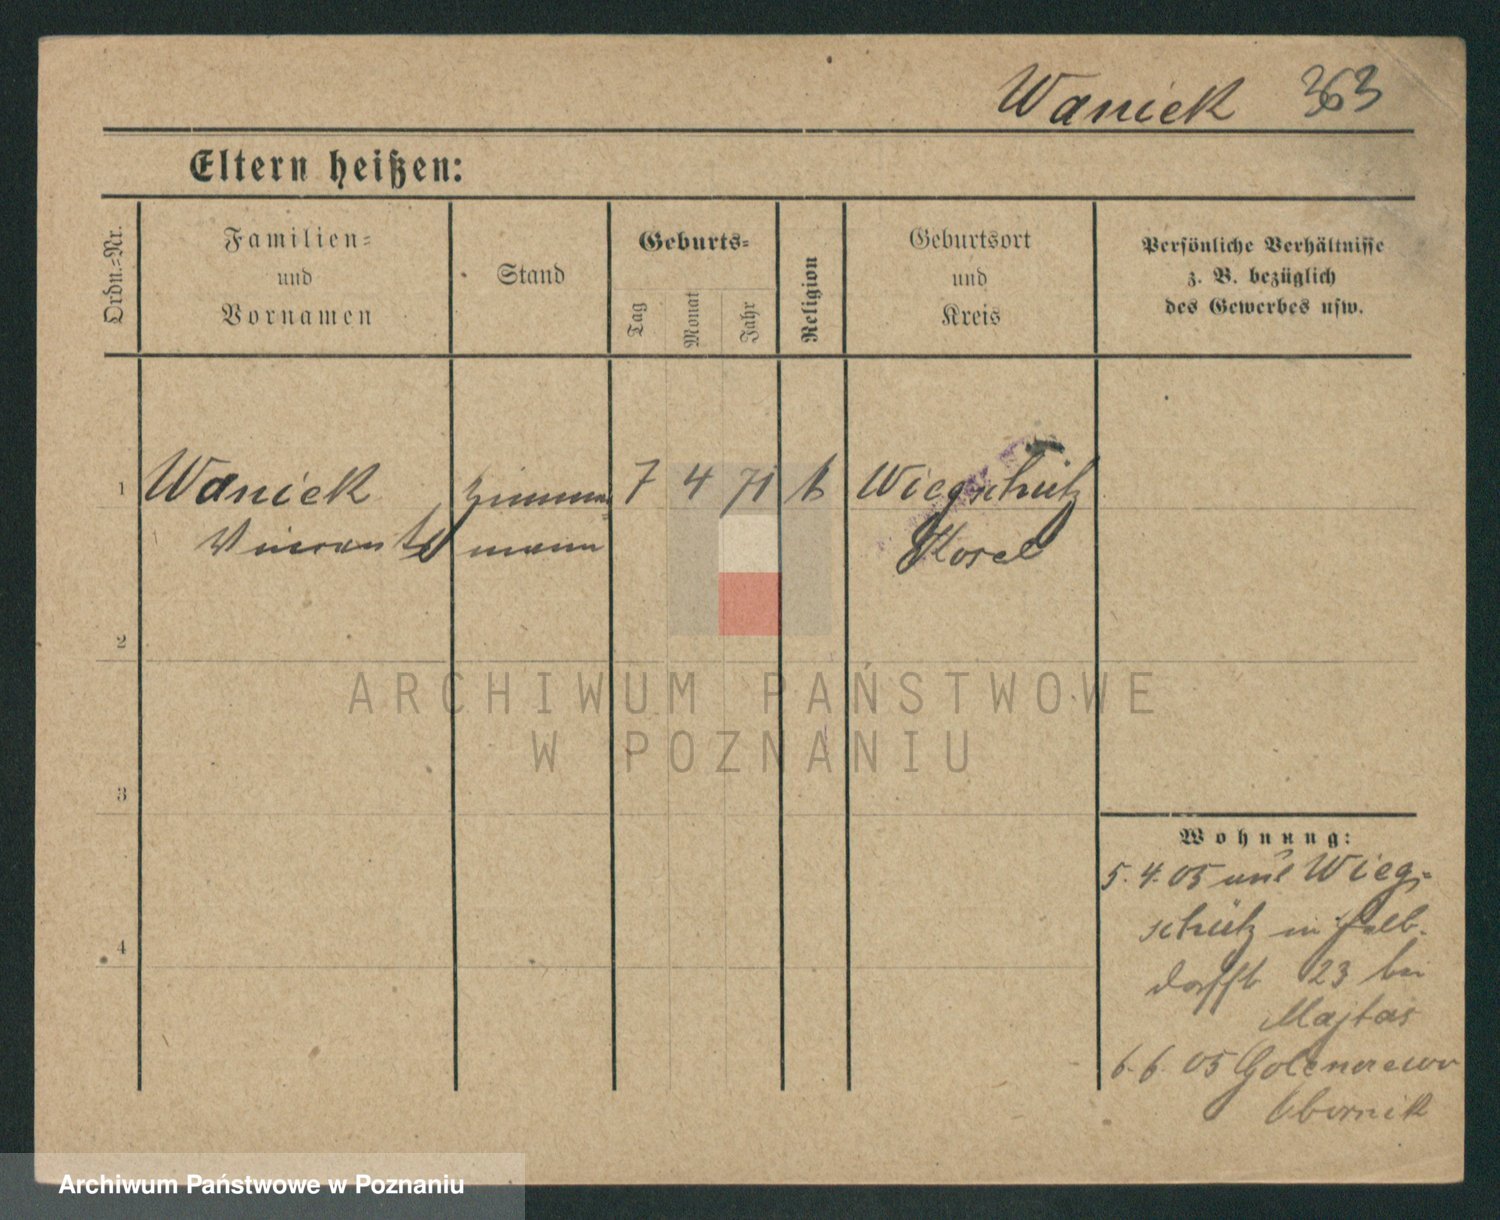 Waniek 363
Eltern heißen:
Ordn.-Nr.
Familien-
und
Vornamen
Stand
Geburts-
Tag
Monat
Jahr
Religion
Geburtsort
und
Kreis
Persönliche Verhältnisse
z. B. bezüglich
des Gewerbes usw.
1 Waniek Zimmer 7 4 71 k Wiegschütz
Vincent mann Kosel
2
ARCHIWUM PAŃSTWOWE
W POZNANIU
3
4
Wohnung:
5.4.05 aus Wieg-
schütz in Halb-
dorfstr 23 bei
Majtas
6.6.05 Golenczewo
Obornik
Archiwum Państwowe w Poznaniu